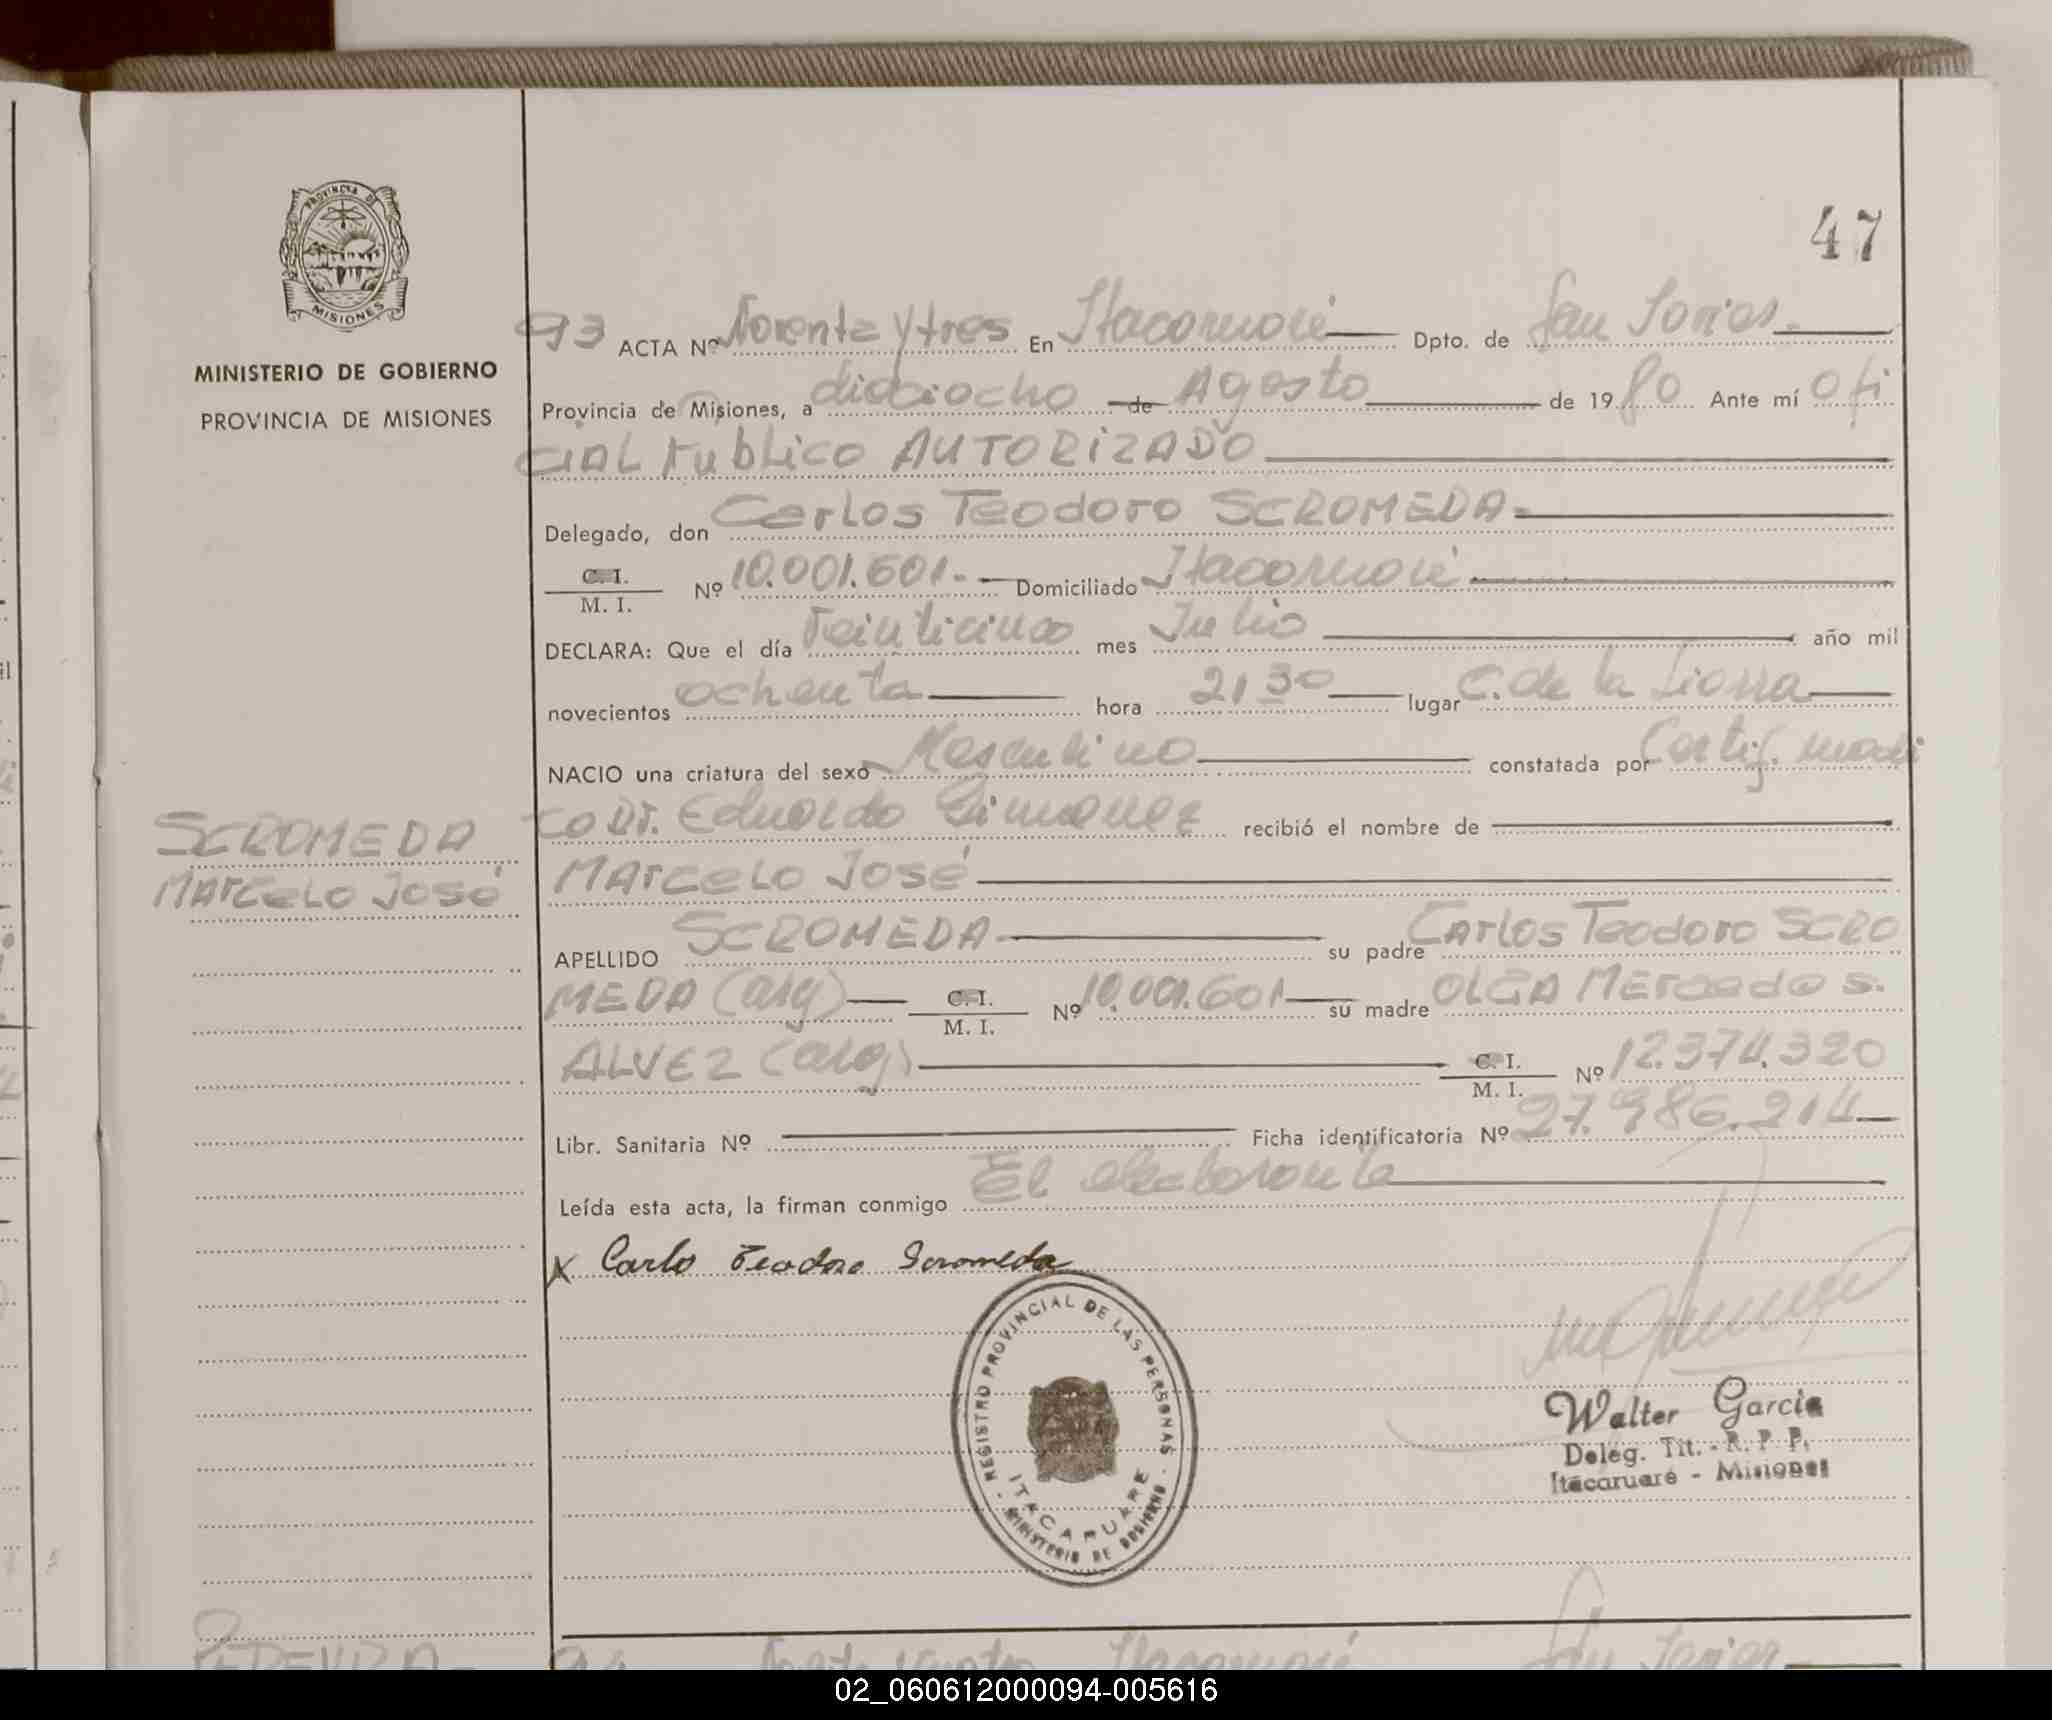 PROVINCIA DE
MISIONES
MINISTERIO DE GOBIERNO
PROVINCIA DE MISIONES
47
93 ACTA Nº Noventa y tres En Itacaruaré Dpto. de San Javier.
Provincia de Misiones, a dieciocho de Agosto de 1980 Ante mí Ofi
cial Publico AUTORIZADO
Delegado, don Carlos Teodoro SCROMEDA.
C. I.
M. I.
Nº 10.001.601. Domiciliado Itacaruaré
DECLARA: Que el día Veinticinco mes Julio año mil
novecientos ochenta hora 21 30 lugar C. de la Sierra
NACIO una criatura del sexo Masculino constatada por Certif. medi
co Dr. Eduardo Gimenez recibió el nombre de
SCROMEDA
MARCELO JOSÉ
MARCELO José
APELLIDO SCROMEDA su padre CARLOS Teodoro SCRO
MEDA (arg) C. I. M. I. Nº 10.001.601 su madre OLGA MERCEDES
ALVEZ (arg) C. I. M. I. Nº 12.374.320
Libr. Sanitaria Nº Ficha identificatoria Nº 27.986.214
Leída esta acta, la firman conmigo El declarante
X Carlo Teodoro Scromeda
REGISTRO PROVINCIAL DE LAS PERSONAS
ITACARUARE
MINISTERIO DE GOBIERNO
Walter Garcia
Deleg. Tit. - R. P. P.
Itacaruaré - Misiones
PEREYRA
94 Noventa y cuatro Itacaruaré San Javier
02_060612000094-005616